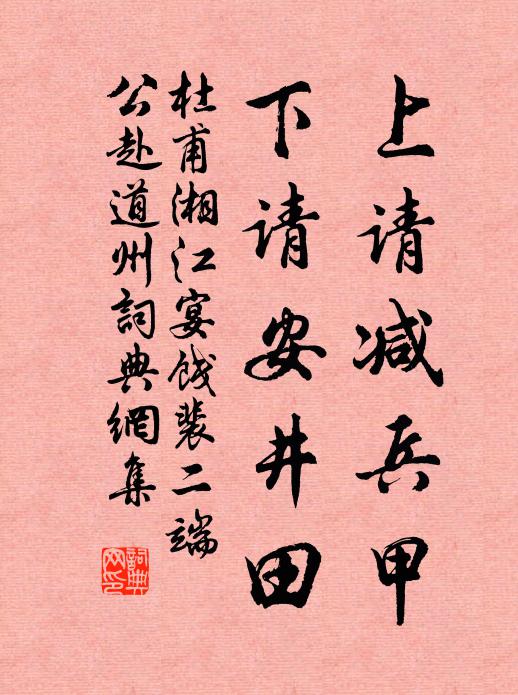 上请减兵甲
下请安井田
杜甫湘江宴餞裴二端
公赴道州詞典網集
詞典网印